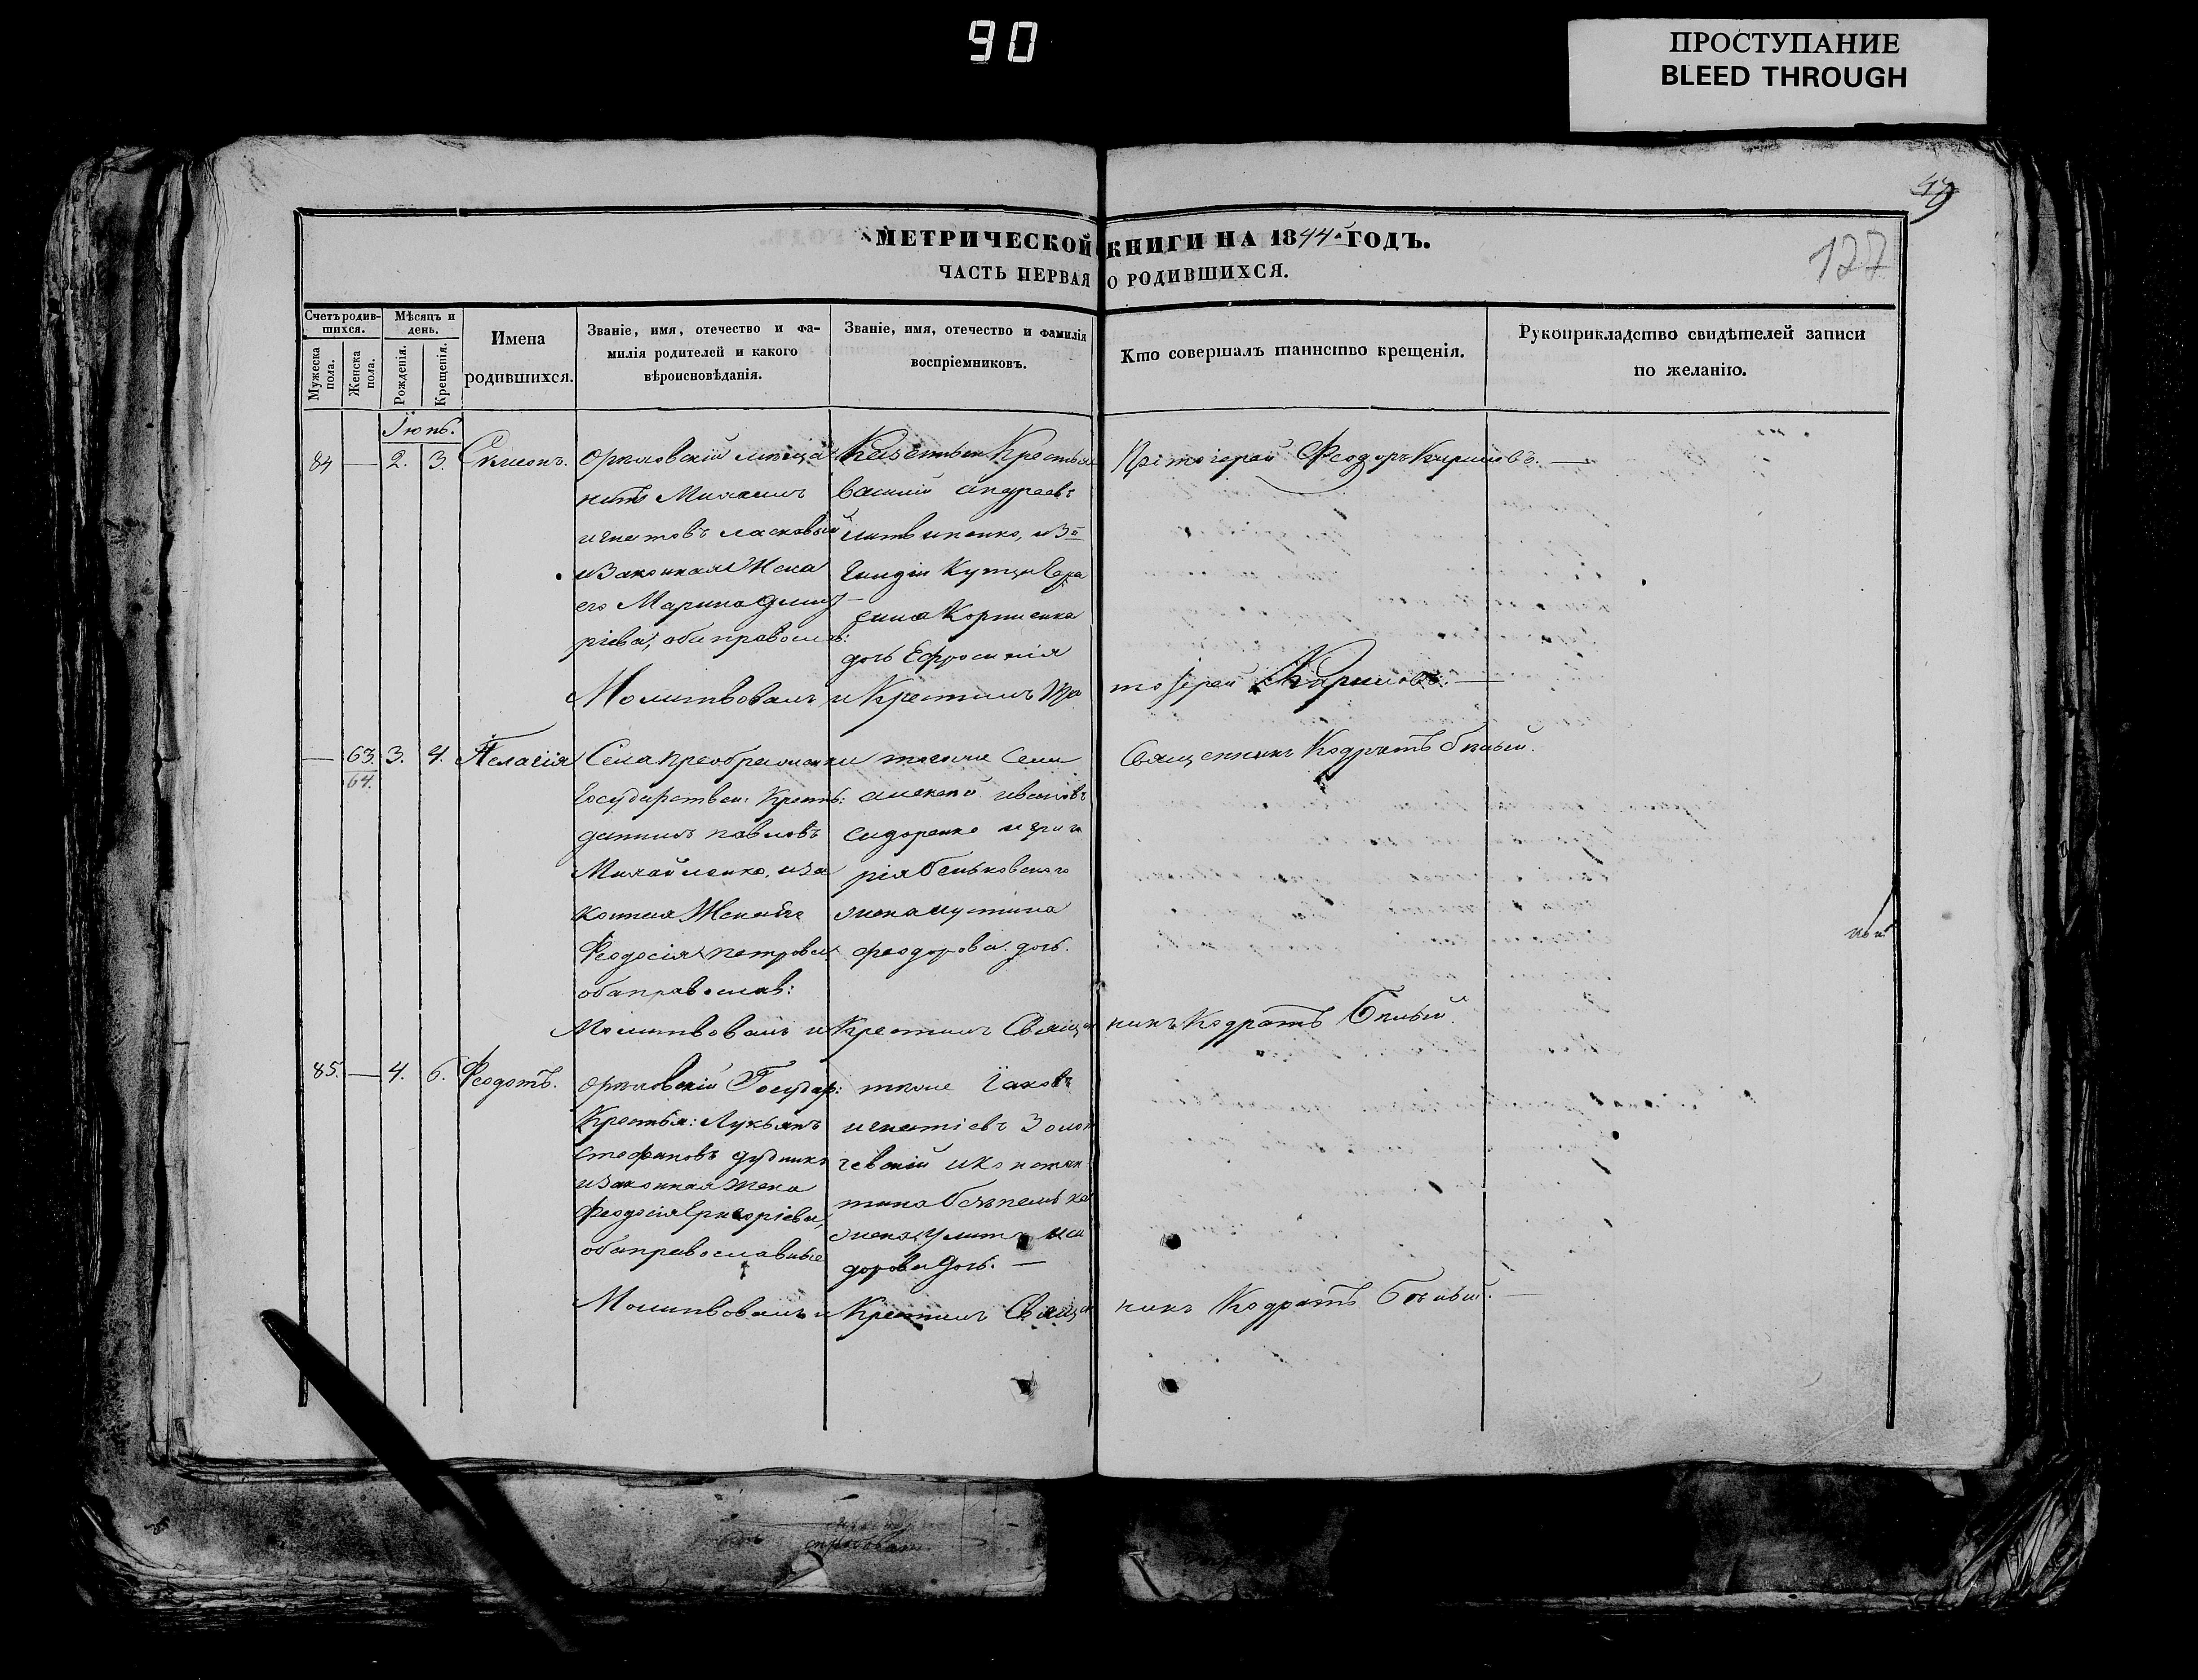 90
ПРОСТУПАНИЕ
BLEED THROUGH
49
127
МЕТРИЧЕСКОЙ КНИГИ НА 1844й ГОДЪ.
ЧАСТЬ ПЕРВАЯ О РОДИВШИХСЯ.
Счетъ родившихся.
Мужеска пола.
Женска пола.
Мѣсяцъ и день.
Рожденія.
Крещенія.
Имена
родившихся.
Званіе, имя, отечество и фа-
милія родителей и какого
вѣроисновѣданія.
Званіе, имя, отечество и фамилія
воспріемниковъ.
Кто совершалъ таинство крещенія.
Рукоприкладство свидѣтелей записи
по желанію.
Іюнь.
84 — 2. 3. Симеонъ.
Орѣховскій мѣща-
нинъ Михаилъ
Игнатовъ Ласкавый
и законная Жена
его Марина Дмит-
ріева, оба православ:
Казенный Крестья
Василій Андреевъ
Литвиненко, и 3й
Гильдіи Купца
Корніенка
дочь Ефросинія
Протоіерей Феодоръ Кириловъ. —
Молитвовалъ и Крестилъ Протоіерей Кириловъ. —
— 63. 3. 4. Пелагія
64.
Села Преображенки
Государствен: Крестьян:
Даніилъ Павловъ
Михайленко, и за
конная Жена его
Феодосія Петрова
оба православ:
тогоже Села
Алексей Ивановъ
Сидоренко и Григо
рія Беньковского
жена Иустина
Феодорова дочь.
Священникъ Кодратъ Бѣлый.
Молитвовалъ и Крестилъ Священникъ Кодратъ Бѣлый.
85. — 4. 6. Феодотъ.
Орѣховскій Государ:
Крестья: Лукьянъ
Стефановъ Дудника
и законная жена
Феодосія Григоріева,
оба православные
Іаковъ
Игнатіевъ Золот
и Констан
тина
жена Улита Иси
дорова дочь. —
Молитвовалъ и Крестилъ Священникъ Кодратъ Бѣлый. —